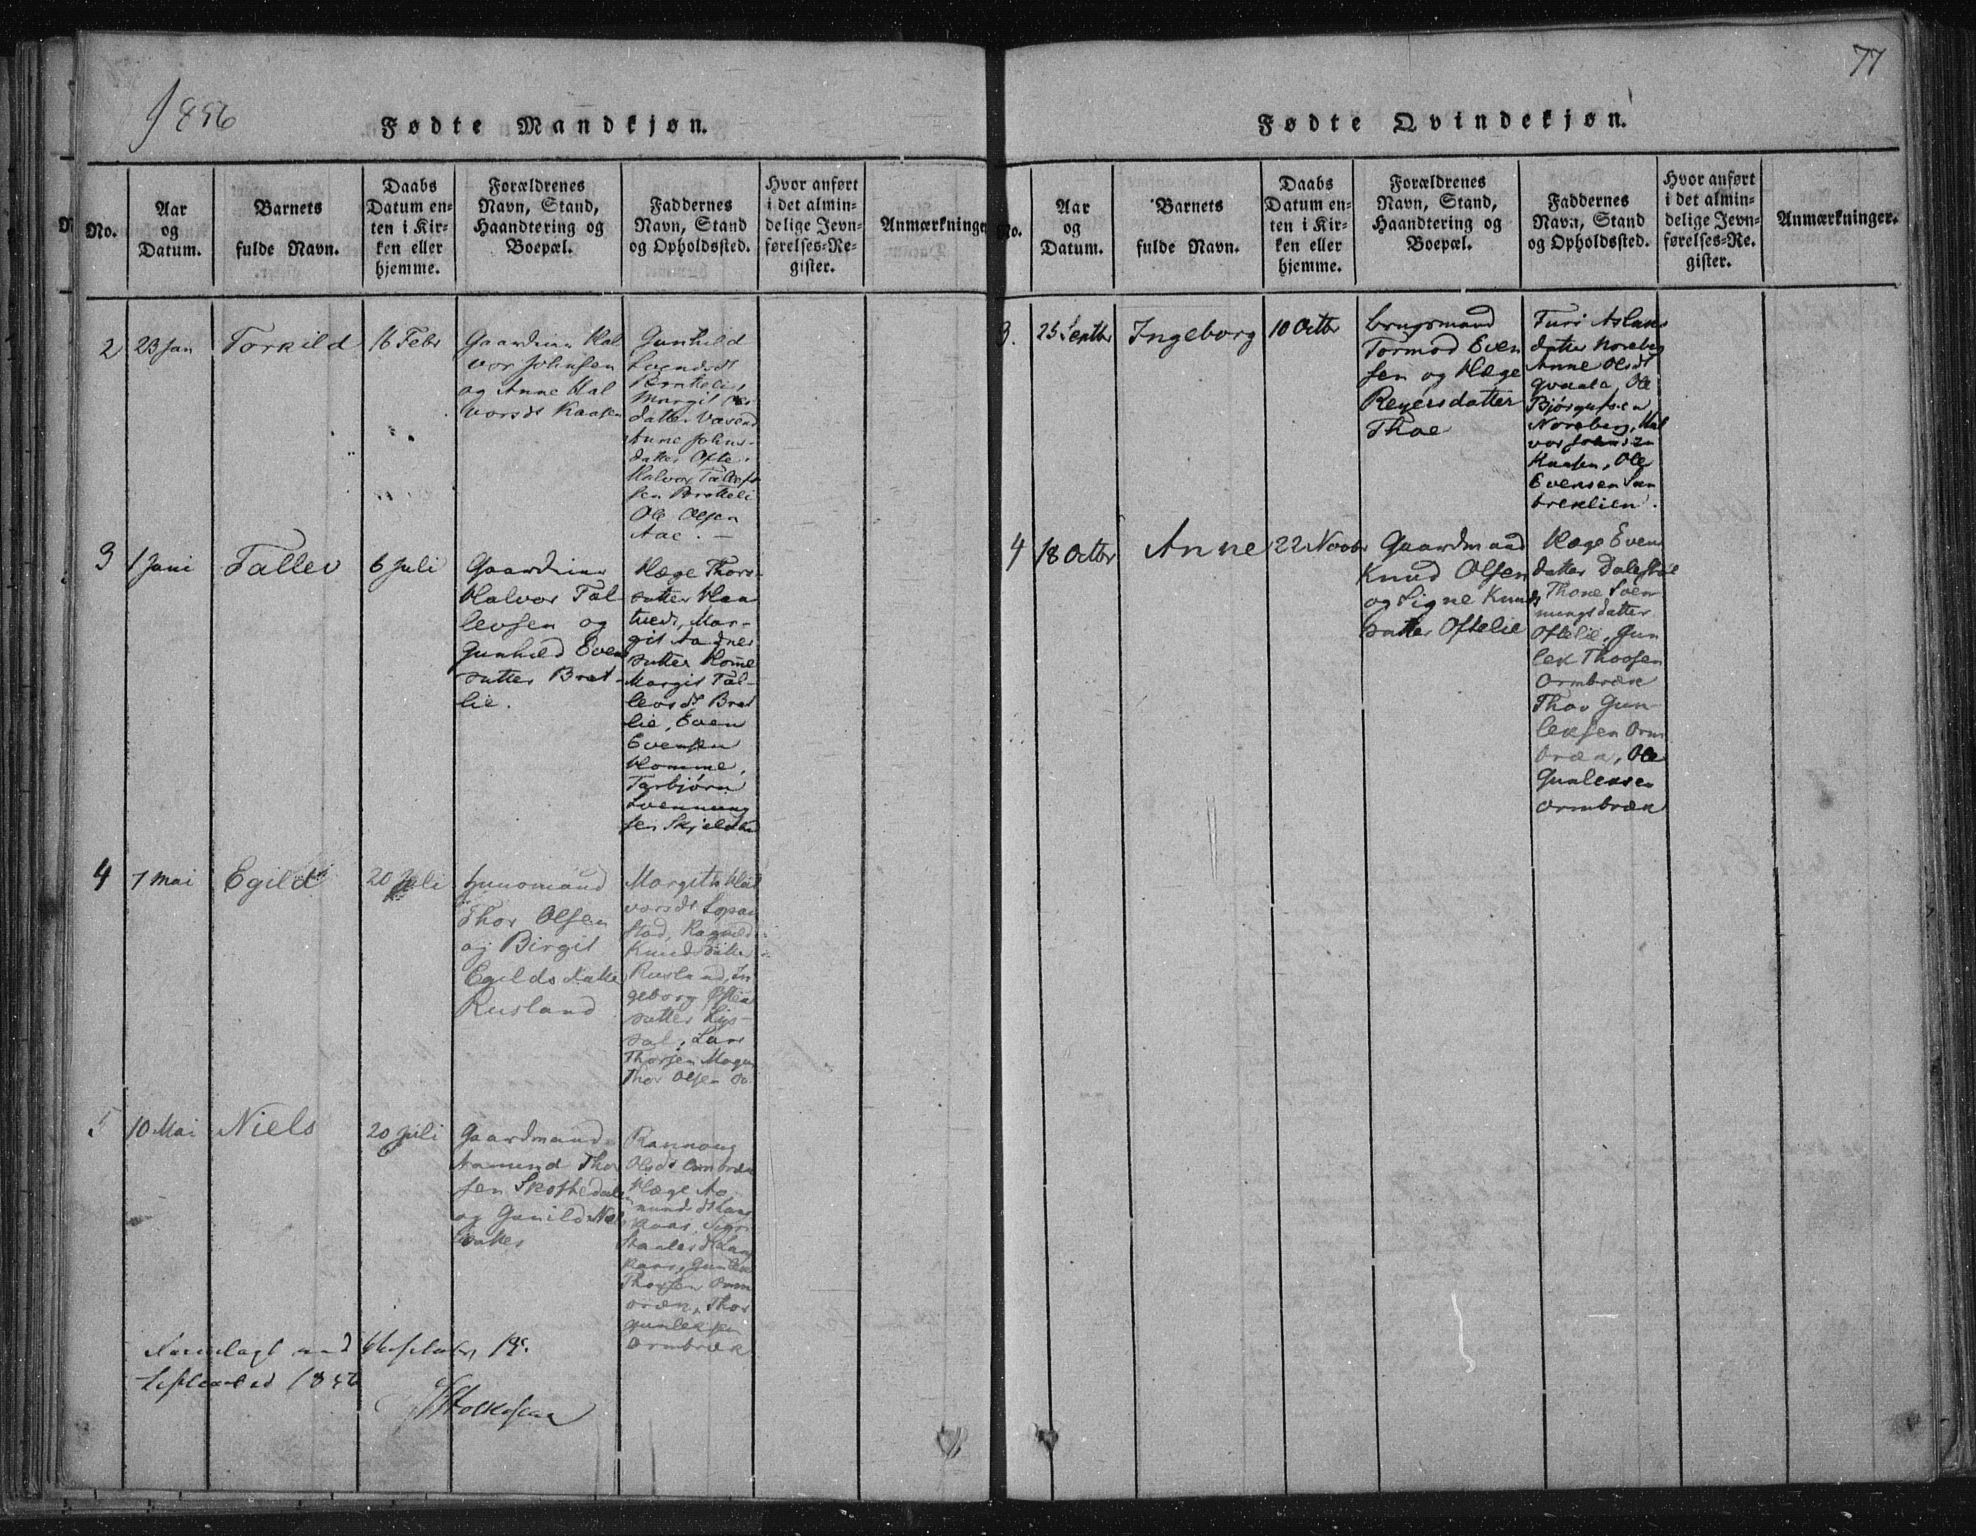 1856
Fødte Mandkjøn.
No.
Aar
og
Datum.
Barnets
fulde Navn.
Daabs
Datum en-
ten i Kir-
ken eller
hjemme.
Forældrenes
Navn, Stand,
Haandtering og
Boepæl.
Faddernes
Navn, Stand
og Opholdssted.
Hvor anført
i det almin-
delige Jevn-
førelses-Re-
gister.
Anmærkninger
2
23 Jan
Torkild
16 Febr
Gaardm Hal
vor Johnsen
og Anne Hal
vorsdt Kaasen
Gunhild
Svendsdt
Margit
datter
Anne Johns-
datter Ofte.
Halvor Tallefs
sen
Ole Olsen
Aae. —
3
1 Juni
Tallev
6 Juli
Halvor Tal-
levsen og
Gunhild Evens
datter Brat-
lie.
Hæge Thors-
datter
tvedt, Mar-
git Aadnes
datter Home
Margit Tal-
levsdt Brat
lie, Even
Evensen
Homme,
Torbjørn
Svennung
sen
4
7 Mai
Egild
20 Juli
Huusmand
Thor Olsen
og Birgit
Egilds datter
Rusland
Margith Hal
vorsdt
Knudsdatter
Rusland, In
geborg
datter
dal, Lars
Thorsen
Thor Olsen
5
10 Mai
Niels
20 Juli
Gaardmand
Aamund Thor
sen
og Gunild
Rannoug
Olsdt Ormbræk
Hæge Aa
mundsdt
Thorsen Orm
bræk, Thor
Gunleksen
Ormbræk
1856
77
Fødte Qvindekjøn.
No.
Aar
og
Datum.
Barnets
fulde Navn.
Daabs
Datum en-
ten i Kir-
ken eller
hjemme.
Forældrenes
Navn, Stand,
Haandtering og
Boepæl.
Faddernes
Navn, Stand
og Opholdssted.
Hvor anført
i det almin-
delige Jevn-
førelses-Re-
gister.
Anmærkninger.
3.
25 Septbr
Ingeborg
10 Octbr
Brugsmand
Tormod Even
sen og Hæge
Reyersdatter
Thoe
Turi Aslaks
datter Noreberg
Anne Olsdt
Qvaale, Ole
Bjørgufsen
Noreberg, Hal
vor Johnsen
Kaasen, Ole
Evensen San
breklien.
4
18 Octbr
Anne
22 Novbr
Gaardmand
Knud Olsen
og Signe Knuds
datter Oftelie
Hæge Evens
datter Dalestøe
Thone Sven
nungsdatter
Oftelie, Gun
lek Thovsen
Ormbræk
Thov Gun-
leksen Orm
bræk, Ole
Gunleksen
Ormbræk